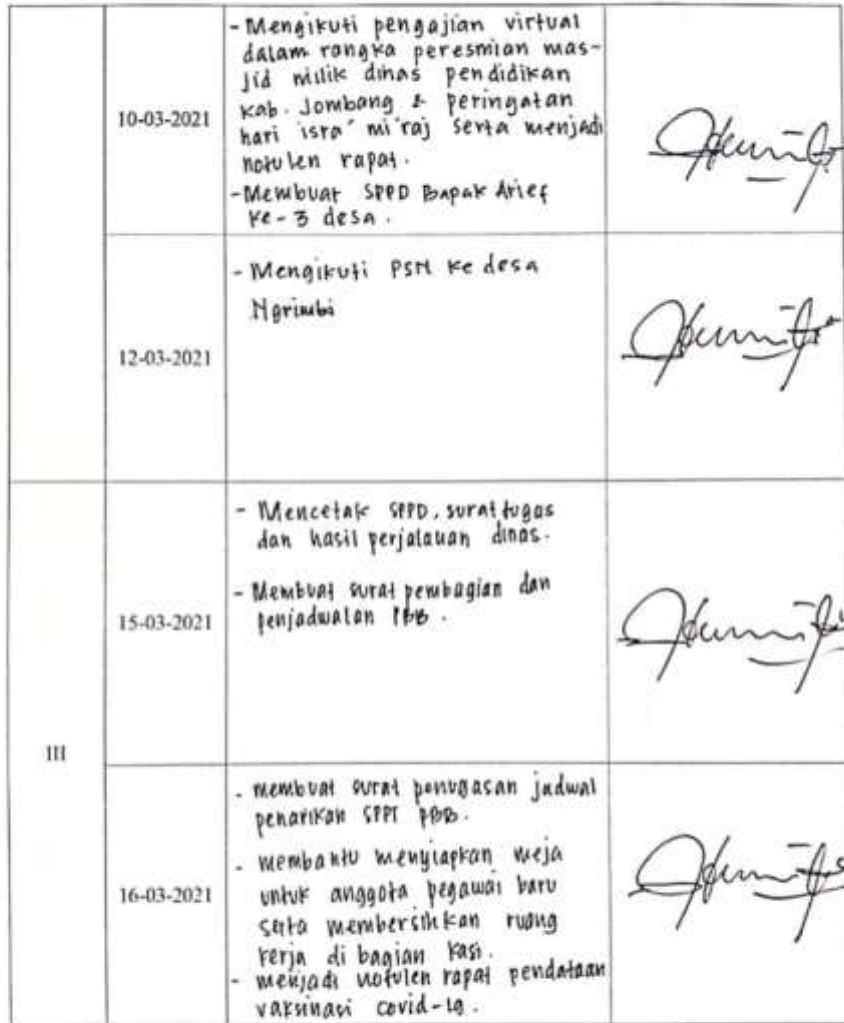 10-03-2021
- Mengikuti pengajian virtual
dalam rangka peresmian mas-
jid milik dinas pendidikan
kab. Jombang & peringatan
hari isra' mi'raj serta menjadi
notulen rapat.
- Membuat SPPD Bapak Arief
ke-3 desa.
12-03-2021
- Mengikuti PSN ke desa
Ngrimbi
III
15-03-2021
- Mencetak SPPD, surat tugas
dan hasil perjalanan dinas.
- Membuat surat pembagian dan
penjadwalan PBB.
16-03-2021
- membuat surat penugasan jadwal
penarikan SPPT PBB.
- membantu menyiapkan meja
untuk anggota pegawai baru
serta membersihkan ruang
kerja di bagian kasi.
- menjadi notulen rapat pendataan
vaksinasi covid-19.